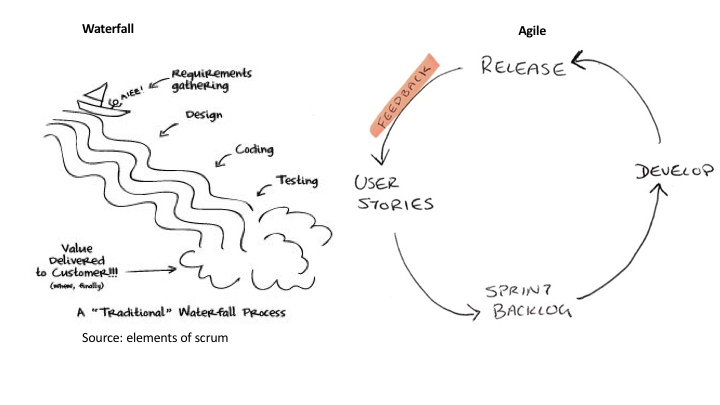 Waterfall
Requirements
gathering
AIEE!
Design
Coding
Testing
Value
Delivered
to Customer!!!
(whew, finally)
A "Traditional" Waterfall Process
Source: elements of scrum
Agile
RELEASE
FEEDBACK
DEVELOP
USER
STORIES
SPRINT
BACKLOG